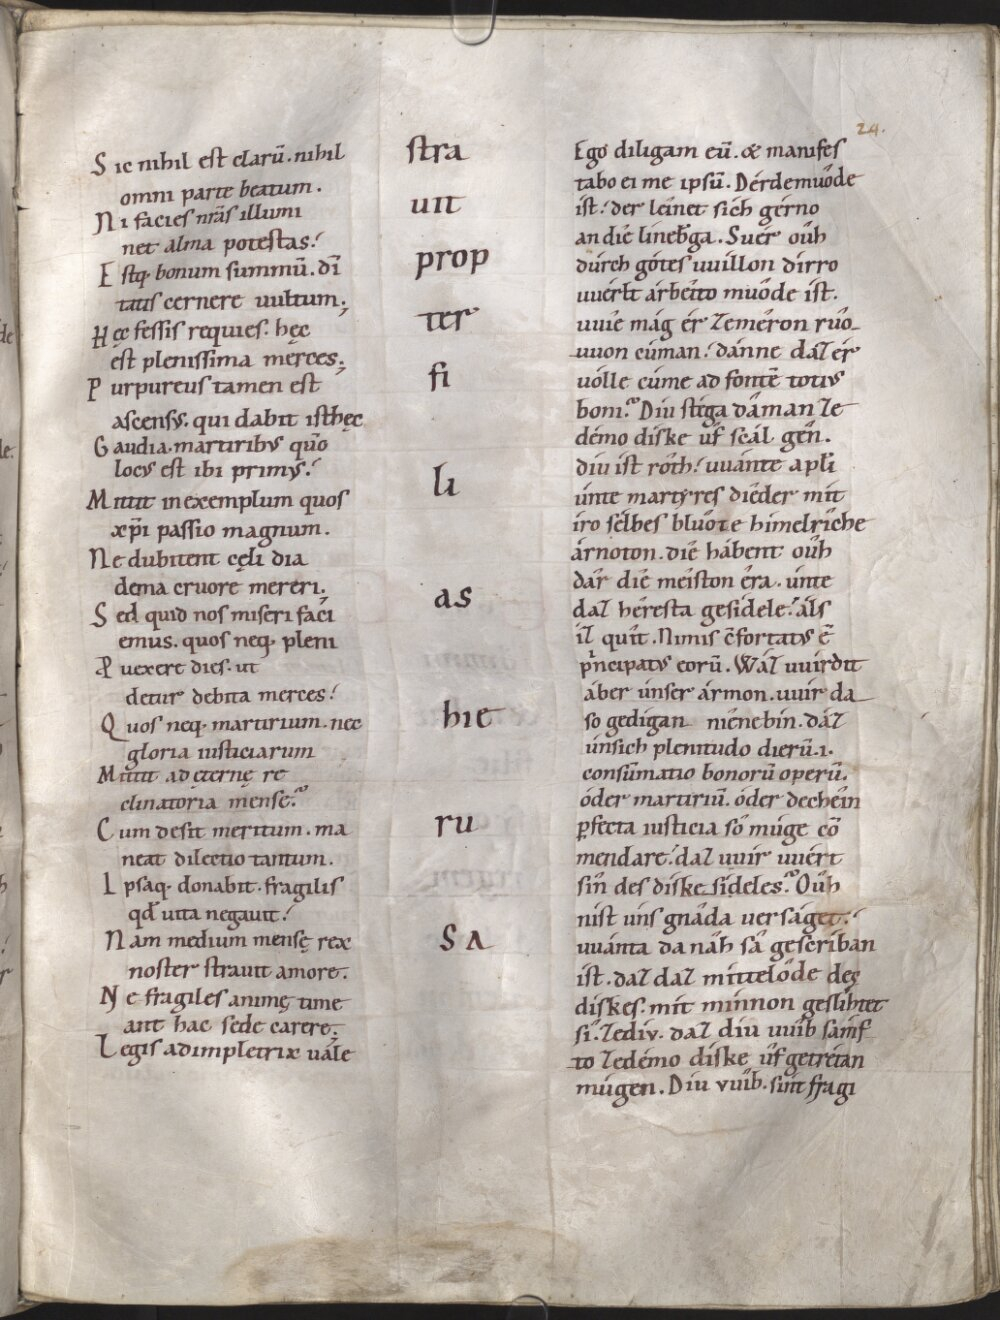 24.
Sic nihil est clarū. nihil
omni parte beatum.
Ni facies nrās illumi
net alma potestas.
Estq; bonum summū. dī
tatis cernere uultum;
Hęc fessis requies. hęc
est plenissima merces;
Purpureus tamen est
ascensus. qui dabit isthęc
Gaudia. martiribus quō
locus est ibi primus.
Mittit in exemplum quos
xp̄i passio magnum.
Ne dubitent cęli dia
dema cruore mereri.
Sed quid nos miseri faci
emus. quos neq; pleni
Prouexere dies. ut
detur debita merces?
Quos neq; martirium. nec
gloria iusticiarum
Mittit ad ęternę re
clinatoria mensę?
Cum desit meritum. ma
neat dilectio tantum.
Ipsaq; donabit. fragilis
qđ uita negauit.
Nam medium mensę rex
noster strauit amore.
Ne fragiles animę time
ant hac sede carere.
Legis adimpletrix uale
stra
uit
prop
ter
fi
li
as
hie
ru
SA
Ego diligam eū. & manifes
tabo ei me ipsū. Dérdemuode
ist. der leínet sich gérno
an die lineƀga. Suér oúh
dúrch gótes uuillon dirro
uuérlt árbeito muóde ist.
uuie mág ér zemeron rúo
uuon cúman. dánne dáz ér
uólle cúme ad fontē totius
boni? Diu stéga dâ man ze
démo diske ûf scál gên.
diu ist rôth. uuánte apłi
únte martyres die der mit
íro sélbes bluôte himelriche
árnoton. die hábent oûh
dâr die meíston êra. únte
daz hêresta gesidele. áls
iz quît. Nimis c̄fortatus ē
p̄ncipatus eorū. Wáz uuirdit
áber únser ármon. uuir da
so gedigan niene bin. dáz
únsich plenitudo dierū .i.
consūmatio bonorū operū.
óder martiriū. óder dechéin
ꝑfecta iusticia sô múge cō
mendare. daz uuir uuért
sîn des diske sideles? Oûh
nist úns gnâda uerságet.
uuánta da nâh sâ gescriban
ist. daz daz mittelôde des
diskes. mit minnon geslihtet
sî. zediu. daz diu uuîb sámf
to zedémo diske ûf getrétan
múgen. Diu vuîb. sint fragi